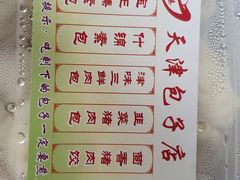 天津包子店
什锦素包
津味三鲜肉包
韭菜猪肉包
茴香猪肉饺
素包
提示：吃剩下的包子一定要煮